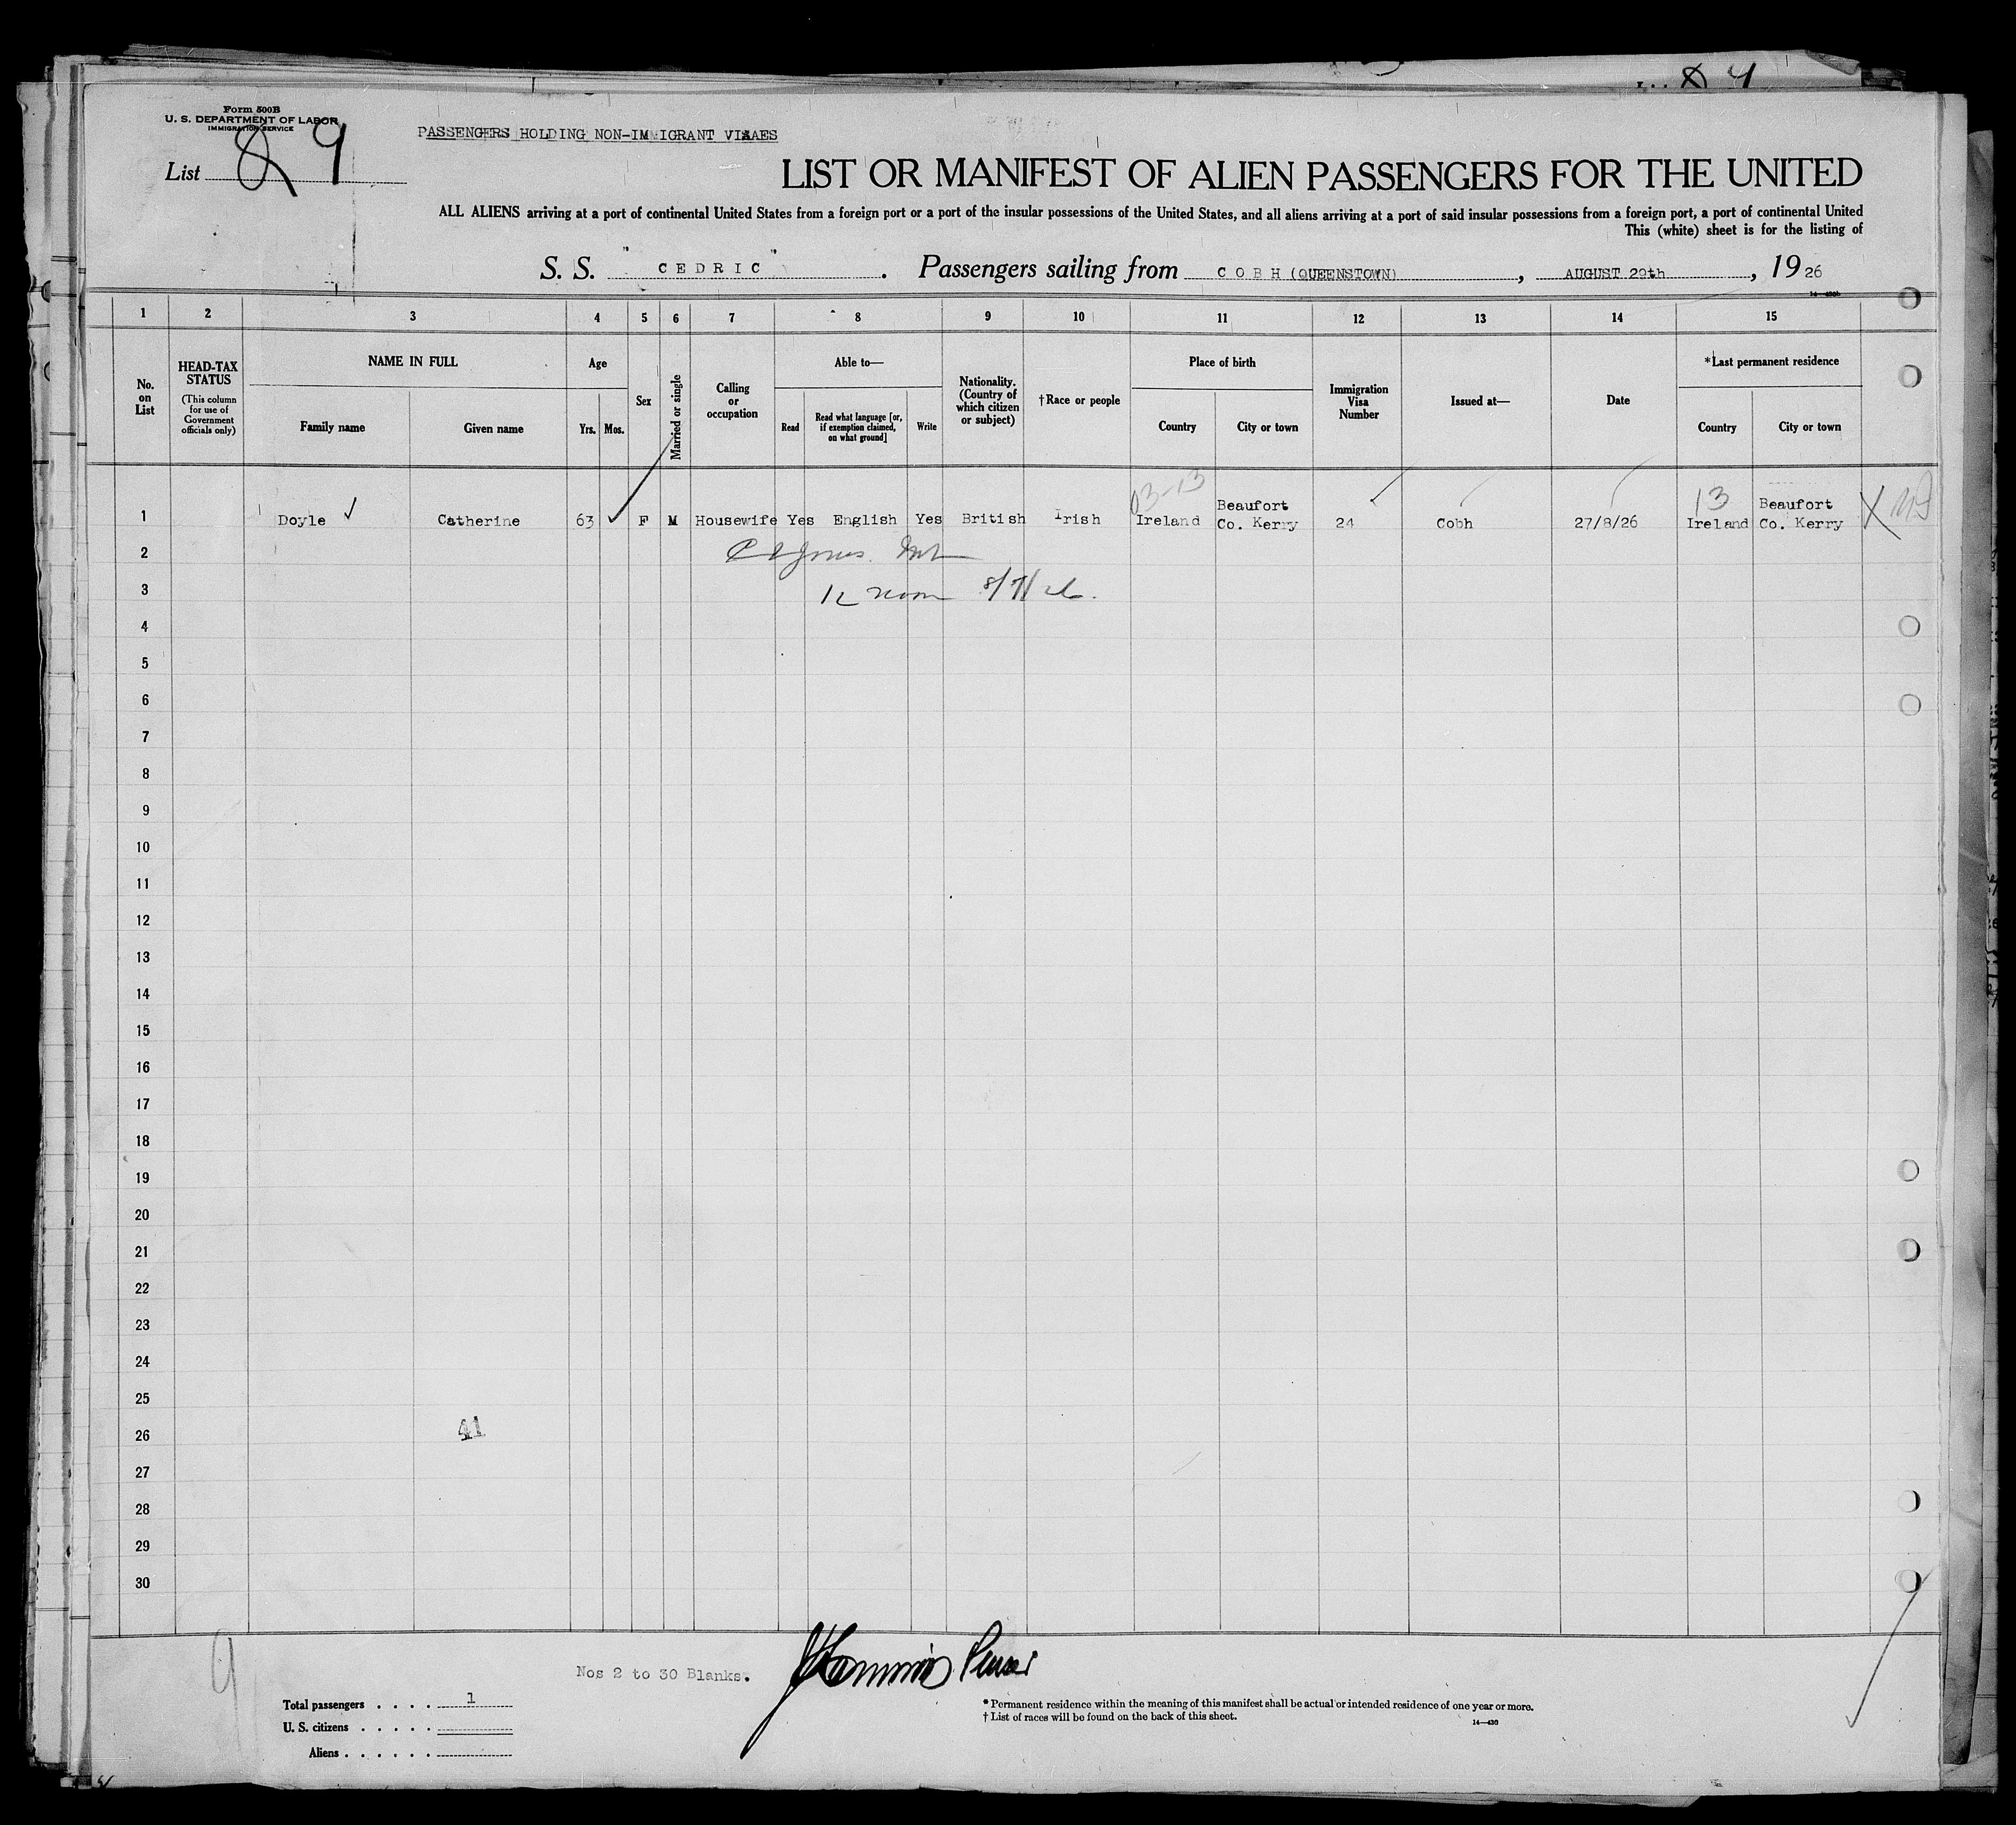 Form 500B
U. S. DEPARTMENT OF LABOR
IMMIGRATION SERVICE
PASSENGERS HOLDING NON-IMMIGRANT VISAES
List 89
LIST OR MANIFEST OF ALIEN PASSENGERS FOR THE UNITED
ALL ALIENS arriving at a port of continental United States from a foreign port or a port of the insular possessions of the United States, and all aliens arriving at a port of said insular possessions from a foreign port, a port of continental United
This (white) sheet is for the listing of
S. S. "CEDRIC". Passengers sailing from COBH (QUEENSTOWN), AUGUST 29th, 1926
1 2 3 4 5 6 7 8 9 10 11 12 13 14 15
No. on List
HEAD-TAX STATUS
(This column for use of Government officials only)
NAME IN FULL
Family name
Given name
Age
Yrs.
Mos.
Sex
Married or single
Calling or occupation
Able to—
Read
Read what language [or, if exemption claimed, on what ground]
Write
Nationality. (Country of which citizen or subject)
†Race or people
Place of birth
Country
City or town
Immigration Visa Number
Issued at—
Date
*Last permanent residence
Country
City or town
03-13 13
1 Doyle Catherine 63 F M Housewife Yes English Yes British Irish Ireland Beaufort Co. Kerry 24 Cobh 27/8/26 Ireland Beaufort Co. Kerry X
2
3 12 noon
4
5
6
7
8
9
10
11
12
13
14
15
16
17
18
19
20
21
22
23
24
25
26 41
27
28
29
30
9
Nos 2 to 30 Blanks.
Total passengers . . . . 1
U. S. citizens . . . . .
Aliens . . . . . .
* Permanent residence within the meaning of this manifest shall be actual or intended residence of one year or more.
† List of races will be found on the back of this sheet.
14—430